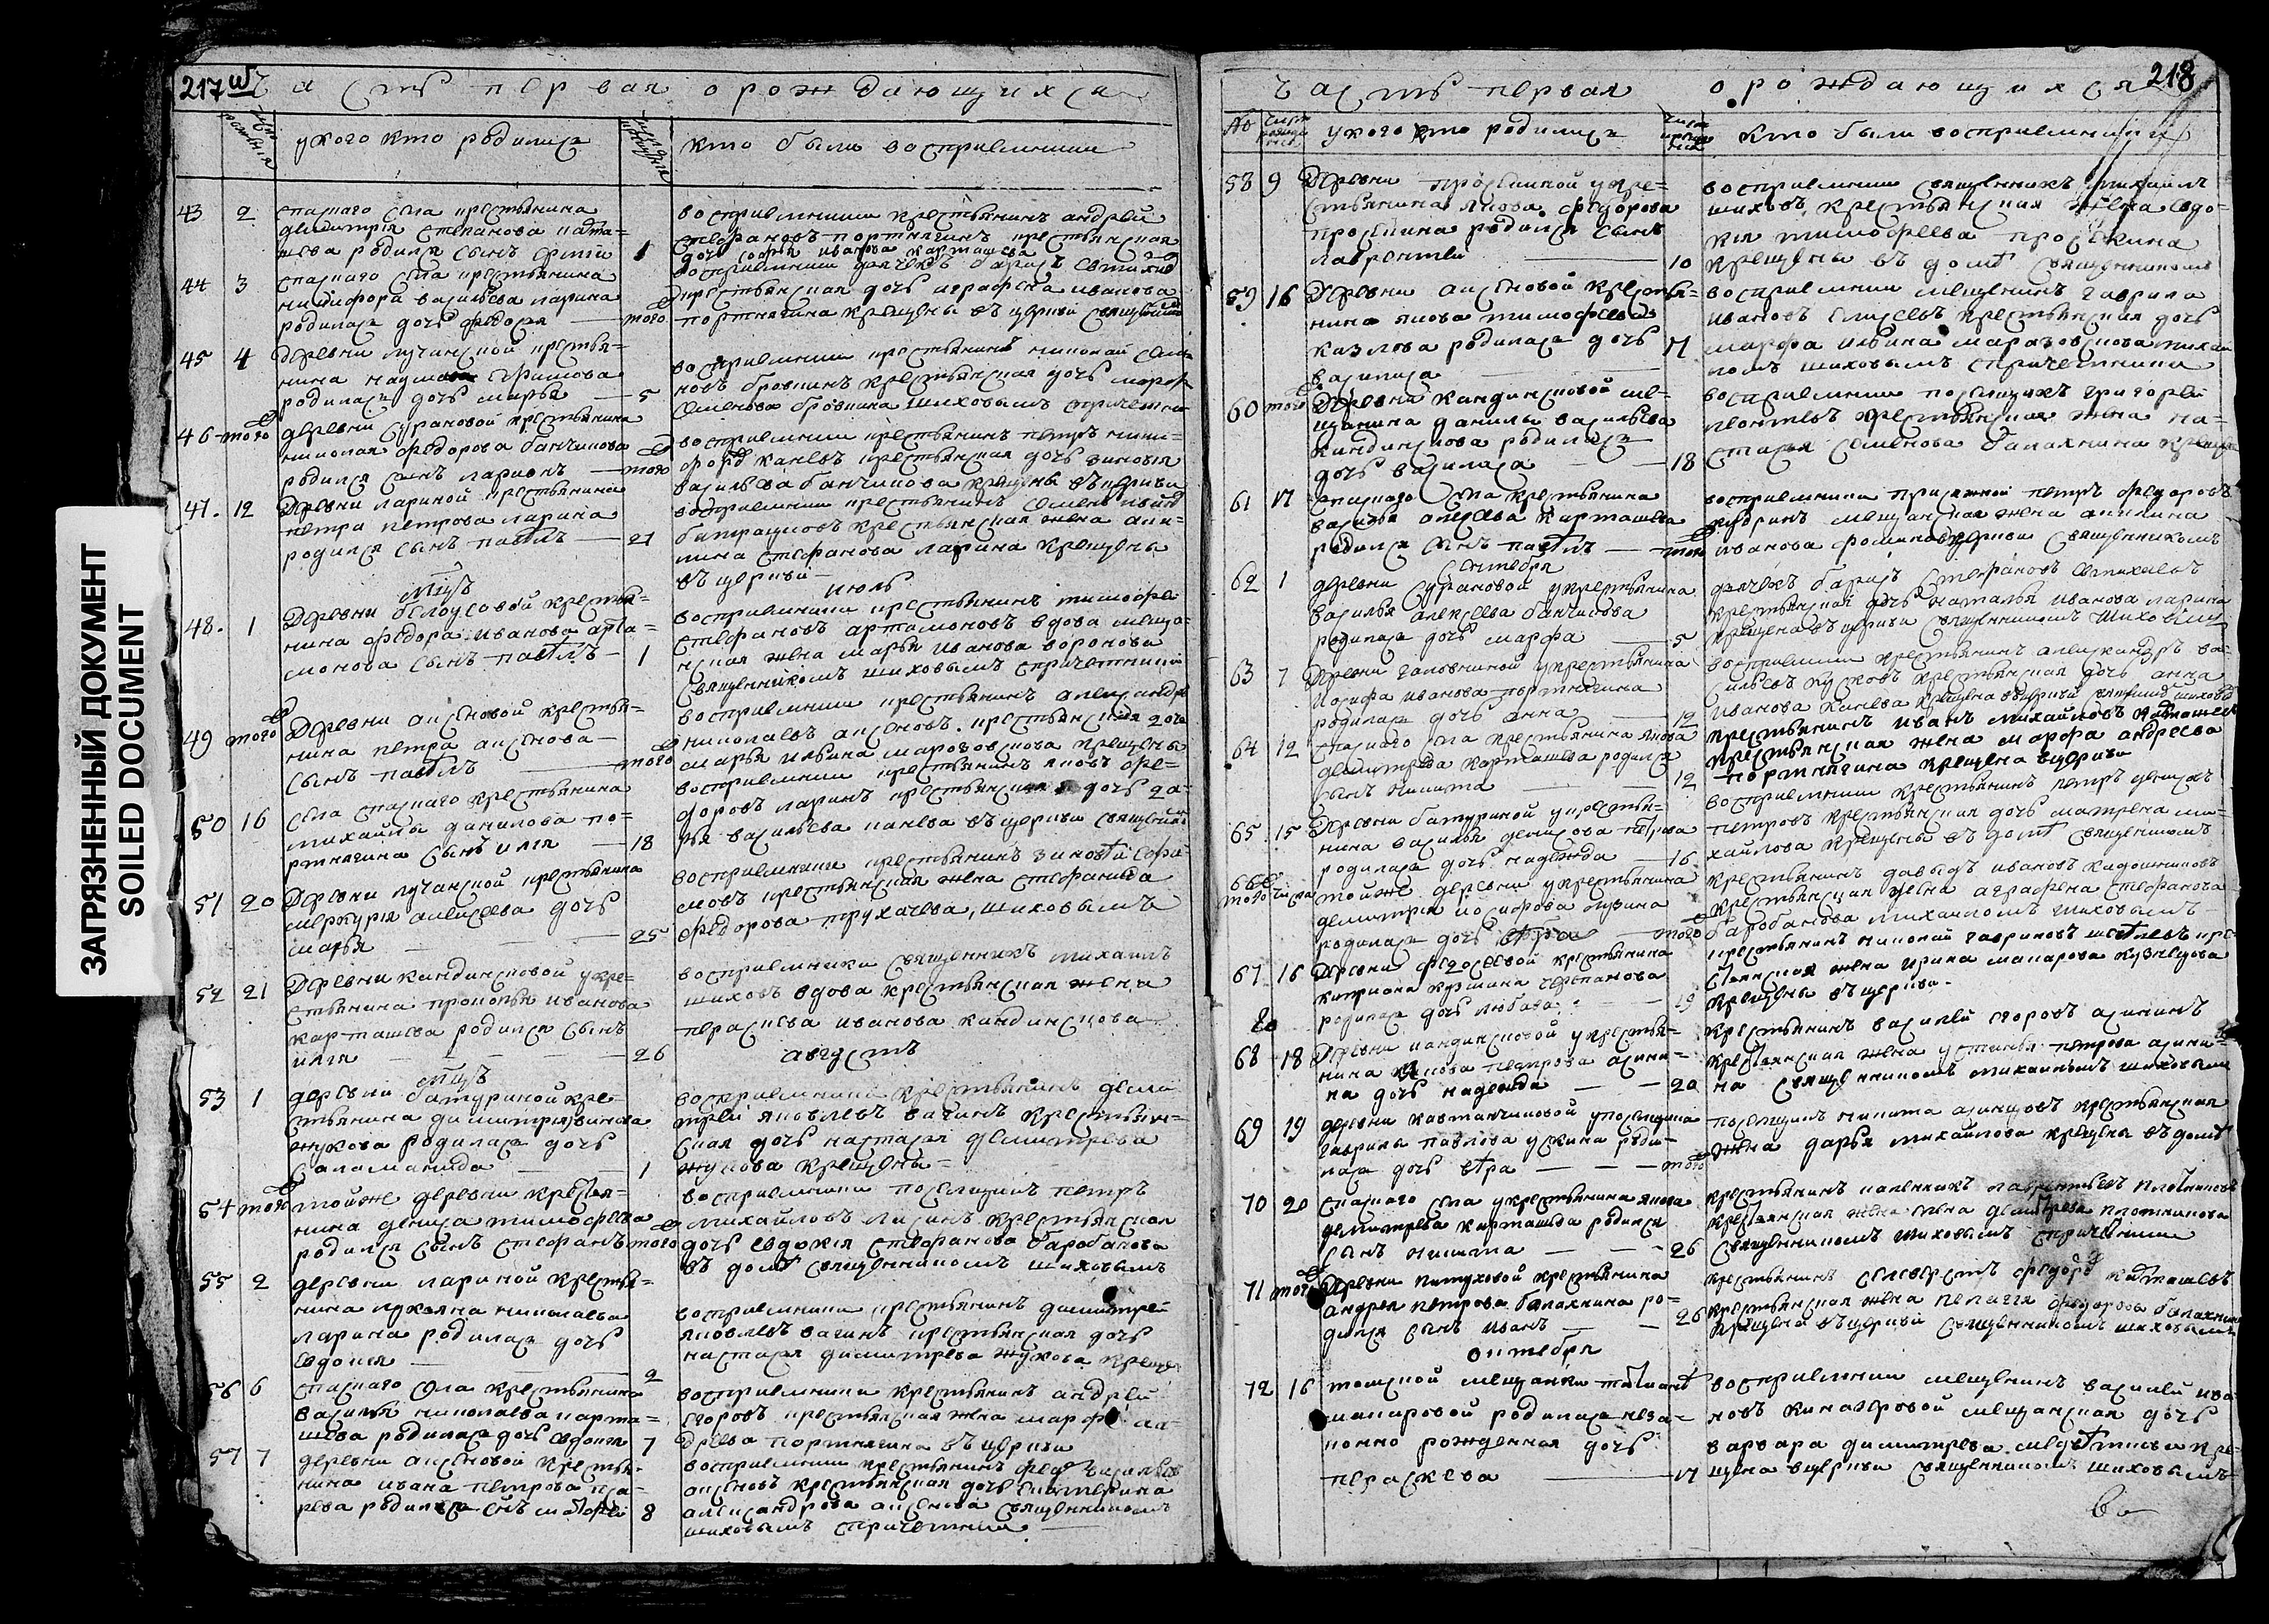 217 об
Часть первая о рождающихся
число рождения
у кого кто родился
число крещения
кто были восприемники
43 2 спаскаго села крестьянина
димитрія степанова карта=
шева родился сынъ 1
восприемники крестьянинъ андрей
стефановъ портнягинъ крестьянская
дочь софья иванова карташева
44 3 спаскаго села крестьянина
никифора васильева ларина
родилась дочь федосья — того
восприемники дьячекъ барисъ евтихиев
крестьянская дочь аграфена иванова
портнягина крещены въ церкви священник
45 4 деревни лучанской крестья=
нина наума ефимова
родилась дочь марья — 5
восприемники крестьянинъ николай семе
новъ бровкинъ крестьянская дочь марфа
семенова бровкина шиховымъ спричетни
46 того деревни сурановой крестьянина
николая федорова банчикова
родился сынъ ларионъ — того
восприемники крестьянинъ петръ ники=
форов каневъ крестьянская дочь зиновья
васильева банчикова крещены въ церкви
47. 12 Деревни лариной крестьянина
петра петрова ларина
родился сынъ павелъ — 21
восприемники крестьянинъ семен иван
крестьянская жена аки=
лина стефанова ларина крещены
въ церкви
июль
48. 1 Деревни белоусовой крестья=
нина федора иванова арта=
монова сынъ павелъ — 1
восприемники крестьянинъ тимофе
стефановъ артамоновъ вдова меща=
нская жена марья иванова воронова
священникомъ шиховымъ спричетники
49 того Деревни аксеновой крестья=
нина петра аксенова —
сынъ павелъ — того
восприемники крестьянинъ александр
николаевъ аксеновъ. крестьянская дочь
марья ильина марозовскова крещены
50 16 села спаскаго крестьянина
михайлы данилова по=
ртнягина сынъ илія — 18
восприемники крестьянинъ яковъ фе=
доровъ ларинъ крестьянская дочь да=
рья васильева канева въ церкви священник
51 20 Деревни лучанской крестьянина
меркурія алексеева дочь
марья — 25
восприемники крестьянинъ зиновей
крестьянская жена стефанида
федорова трухачева, шиховымъ
52 21 Деревни кандинсковой укре=
стьянина прокопья иванова
карташева родился сынъ
илія — 26
восприемники священникъ михаилъ
шиховъ вдова крестьянская жена
параскева иванова кандинскова
августъ
53 1 деревни батуриной кре=
стьянина димитрія
жукова родилась дочь
саламанида — 1
восприемники крестьянинъ дими
трей яковлевъ вагинъ крестьян=
ская дочь настасья демитрева
жукова крещены=
54 того тойже деревни крестья=
нина дениса тимофеева
родился сынъ стефанъ того
восприемники поселщикъ петръ
михайловъ крестьянская
дочь евдокія стефанова барабанова
въ домѣ священникомъ шиховымъ
55 2 деревни лариной крестья=
нина лукояна николаева
ларина родилась дочь
евдокія — 2
восприемники крестьянинъ димитре
яковлевъ вагинъ крестьянская дочь
настасья димитрева жукова креще
56 6 спаскаго села крестьянина
василья николаева карта=
шева родилась дочь евдокія 7
восприемники крестьянинъ андрей
егоровъ крестьянская жена марфа ан=
дреева портнягина въ церкви
57 7 деревни аксеновой крестья=
нина ивана петрова
родился снъ матфей 8
восприемники крестьянинъ федор васильев
аксеновъ крестьянская дочь екатерина
александрова аксенова священникомъ
шиховымъ спричетники
218
Часть первая о рождающихся
№ число рожден
у кого кто родилися
число крещения
кто были восприемники
58 9 Деревни проскиной укре=
стьянина якова федорова
проскина родился сынъ
лаврентей — 10
восприемники священникъ михаилъ
шиховъ крестьянская жена евдо=
кія тимофеева проскина
крещены въ домѣ священникомъ
59 16 Деревни аксеновой крестья=
нина якова тимофеева
казлова родилась дочь 17
василиса
восприемники мещенинъ гаврила
ивановъ елисеевъ крестьянская дочь
марфа ильина марозовскова михаи
ломъ шиховымъ спричетники
60 того Деревни кандинсковой ме=
щанина данилы васильева
кандинскова родилась
дочь василиса — 18
восприемники поселщикъ григорей
леонтьевъ крестьянская жена на=
стасья семенова балахнина крещены
61 17 спаскаго села крестьянина
василья алексева карташева
родился сынъ павелъ — того
восприемники присяжной петръ федоровъ
кудринъ мещанская жена акилина
иванова фомина въцеркви священникомъ
сентября
62 1 деревни сурановой укрестьянина
василья алексеева банчикова
родилась дочь марфа — 5
дьячекъ барисъ стефановъ евтихиевъ
крестьянская дочь наталья иванова ларина
крещена въ церкви священникомъ шиховымъ
63 7 Деревни галовниной укрестьянина
иосифа иванова портнягина
родилась дочь анна — 12
восприемники крестьянинъ александръ ва=
сильевъ кусковъ крестьянская дочь анна
иванова канева крещена въцеркви священник шиховы
64 12 спаскаго села крестьянина якова
демитрева карташева родился
сынъ никита — 12
крестьянинъ иванъ михайловъ карташев
крестьянская жена марфа андреева
портнягина крещена вцеркви
65 15 Деревни батуриной укрестья=
нина василья денисова петрова
родилась дочь надежда — 16
восприемники крестьянинъ петръ денисовъ
петровъ крестьянская дочь матрена ми=
хайлова крещены въ домѣ священникомъ
66 того числа тойже деревни укрестьянина
демитрія иосифова
родилась дочь вѣра — того
крестьянинъ давыдъ ивановъ кидошниковъ
крестьянская жена аграфена стефанова
барабанова михаиломъ шиховымъ
67 16 Деревни федосеевой крестьянина
киприяна кузмина черепанова
родилась дочь любава — 19
крестьянинъ николай гавриловъ кре=
стьянская жена ирина макарова кузнецова
крещены въ церкви.
68 18 Деревни кандинсковой укрестья=
нина якова петрова асани=
на дочь надежда — 20
крестьянинъ василей егоровъ асанинъ
крестьянская жена устинья петрова асани=
на священникомъ михаиломъ шиховым
69 19 деревни кавтанчиковой упоселщика
гаврилы павлова ускина роди=
лась дочь вѣра — того
поселщикъ никита крестьянская
жена дарья михайлова крещены въ домѣ
70 20 спаскаго села укрестьянина якова
демитрева карташева родился
сынъ никита — 26
крестьянинъ лаврентьевъ плотниковъ
крестьянская жена елена демитрева плотникова
священникомъ шиховымъ спричетники
71 того Деревни петуховой крестьянина
андрея петрова балахнина ро=
дился сынъ иванъ — 26
крестьянинъ селеверстъ федоров карташевъ
крестьянская жена пелагея федорова балахнина
крещены въцеркви священникомъ шиховымъ
октября
72 16 томской мещанки татианы
макаровой родилась неза=
конно рожденная дочь
параскева — 17
восприемники мещенинъ василей ива
новъ мещанская дочь
варвара димитрева кре=
щена вцеркви священникомъ шиховымъ
ЗАГРЯЗНЕННЫЙ ДОКУМЕНТ
SOILED DOCUMENT